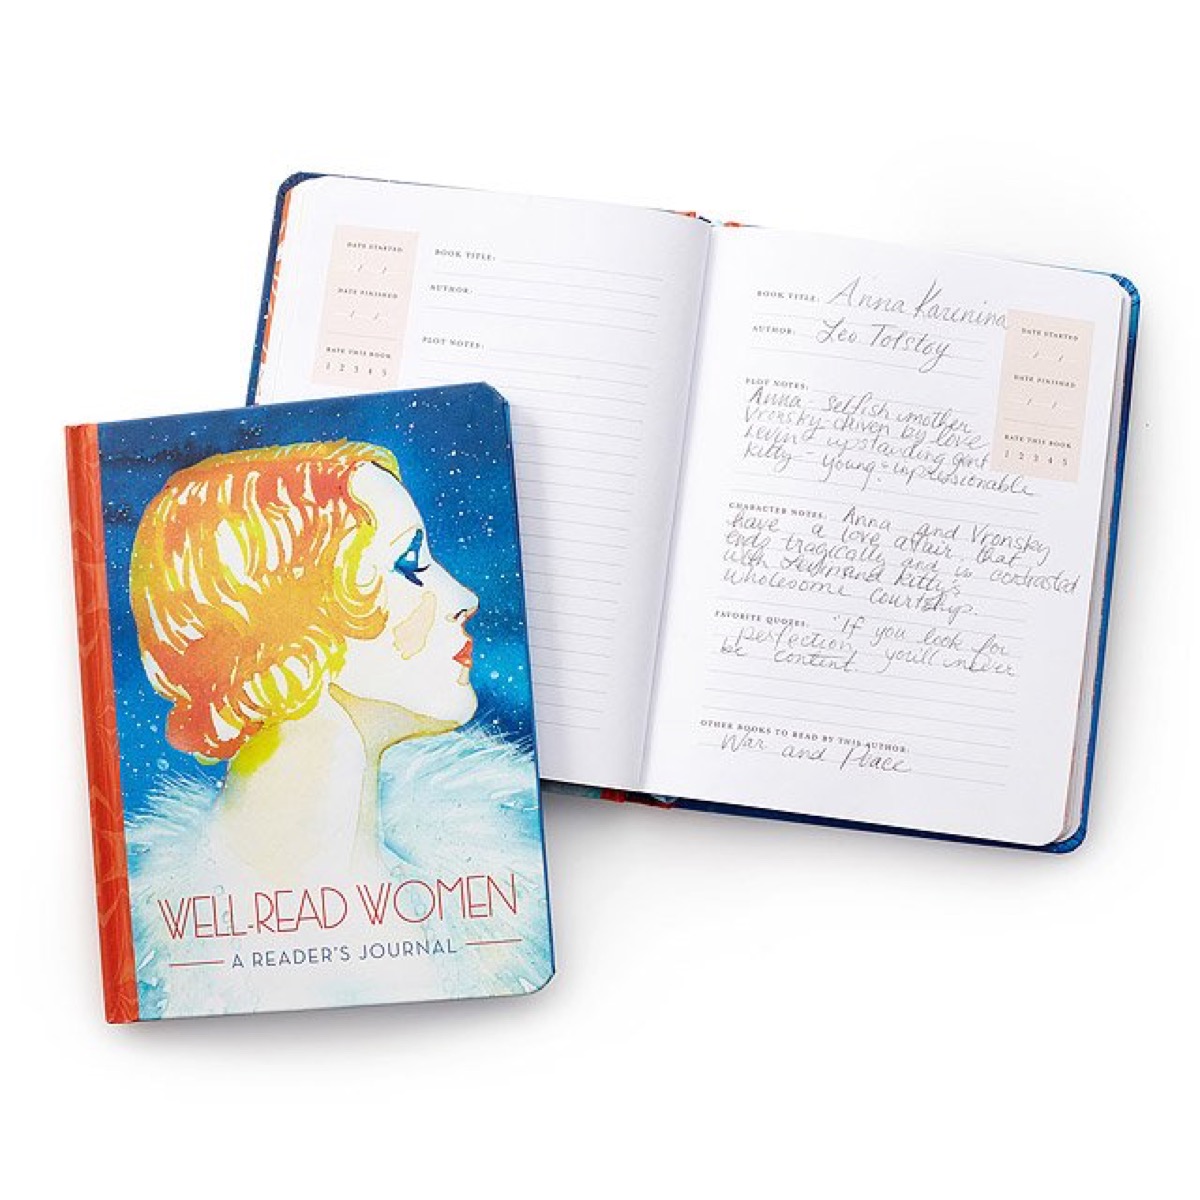 DATE STARTED
/ /
DATE FINISHED
/ /
RATE THIS BOOK
1 2 3 4 5
BOOK TITLE:
AUTHOR:
PLOT NOTES:
BOOK TITLE: Anna Karenina
AUTHOR: Leo Tolstoy
DATE STARTED
/ /
DATE FINISHED
/ /
RATE THIS BOOK
1 2 3 4 5
PLOT NOTES:
Anna - selfish mother
Vronsky - driven by love
Levin - upstanding gent
Kitty - young + impressionable
CHARACTER NOTES: Anna and Vronsky
have a love affair that
ends tragically and is contrasted
with Levin and Kitty's
wholesome courtship.
FAVORITE QUOTES: "If you look for
perfection, you'll never
be content.
OTHER BOOKS TO READ BY THIS AUTHOR:
War and Peace
WELL-READ WOMEN
A READER'S JOURNAL